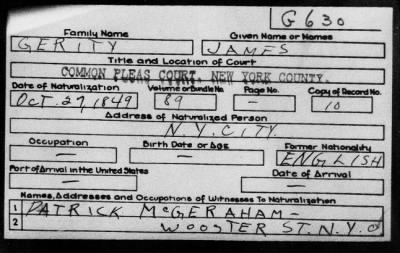 G 630
Family Name Given Name or Names
GERITY JAMES
Title and Location of Court
COMMON PLEAS COURT, NEW YORK COUNTY.
Date of Naturalization Volume or Bundle No. Page No. Copy of Record No.
OCT. 27, 1849 89 — 10
Address of Naturalized Person
N.Y. CITY
Occupation Birth Date or Age Former Nationality
— — ENGLISH
Port of Arrival in the United States Date of Arrival
— —
Names, Addresses and Occupations of Witnesses To Naturalization
1 PATRICK McGERAHAM —
2 WOOSTER ST. N.Y.C